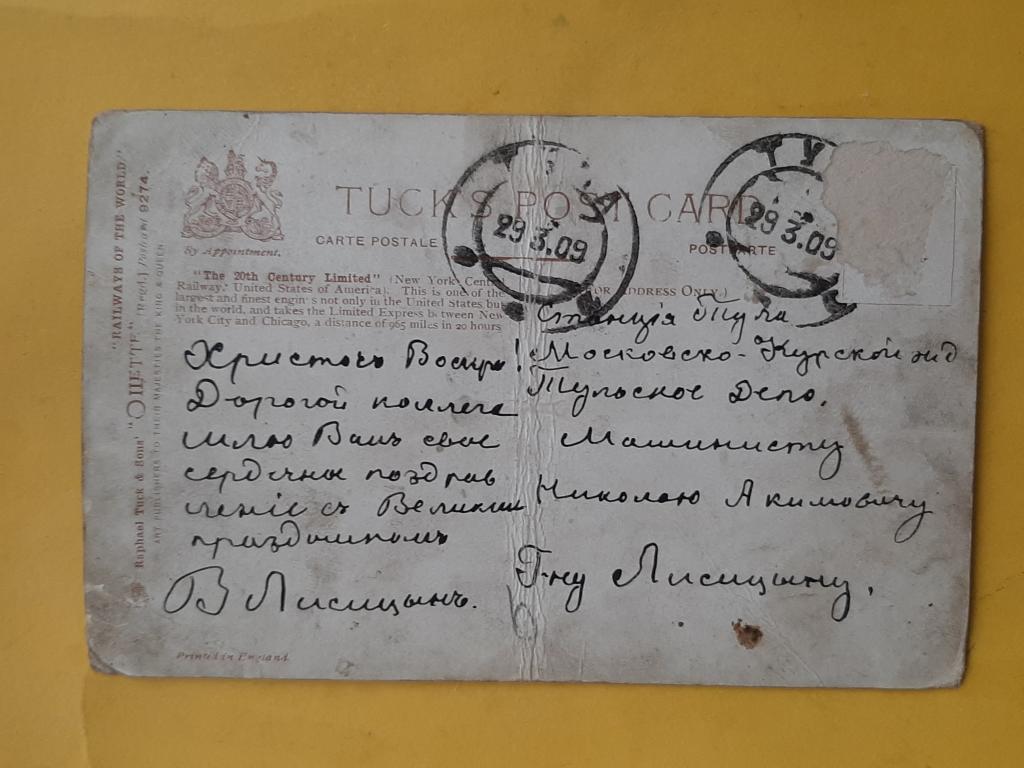 "RAILWAYS OF THE WORLD"
Raphael Tuck & Sons' "OILETTE" [Regd.] Postcard 9274.
ART PUBLISHERS TO THEIR MAJESTIES THE KING & QUEEN
By Appointment.
TUCK'S POST CARD
CARTE POSTALE
POSTKARTE
(FOR ADDRESS ONLY.)
ТУЛА
29 3.09
ТУ
29 3.09
"The 20th Century Limited" (New York Cent
Railway. United States of America). This is one of the
largest and finest engines not only in the United States but
in the world, and takes the Limited Express between New
York City and Chicago, a distance of 965 miles in 20 hours
Христосъ Воскре!
Дорогой коллега
шлю Вамъ свое
сердечные поздрав
леніе съ Великим
праздником
В Лисицынъ.
Станція Тула
Московско-Курской жд
Тульское Депо.
Машинисту
Николаю Акимовичу
Г-ну Лисицыну.
Printed in England.